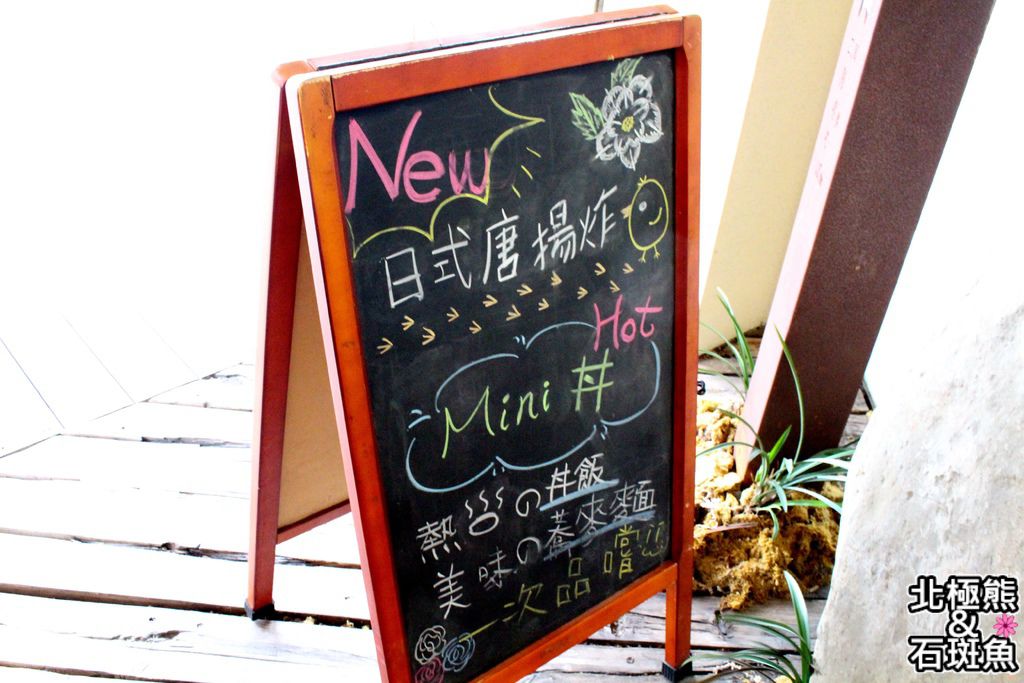 New
日式唐揚炸
Hot
Mini 丼
熱の丼飯
美味の蕎麥麵
一次品嚐
北極熊
&
石斑魚